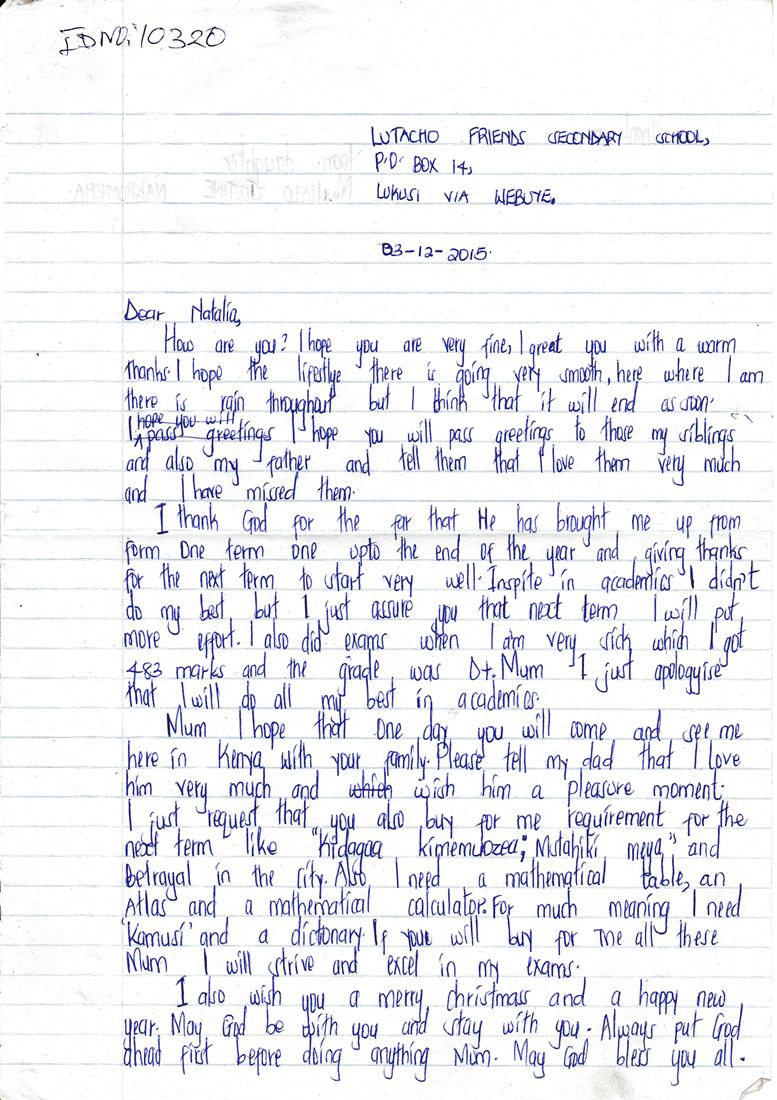 IDNO:10320
LUTACHO FRIENDS SECONDARY SCHOOL,
P.O. BOX 14,
LUKUSI VIA WEBUYE.
03-12-2015.
Dear Natalia,
How are you? I hope you are very fine, I great you with a warm
thanks. I hope the lifestlye there is going very smooth, here where I am
there is rain throughout but I think that it will end as soon.
hope you will
I pass greetings I hope you will pass greetings to those my siblings
and also my father and tell them that I love them very much
and I have missed them.
I thank God for the far that He has brought me up from
form One term one upto the end of the year and giving thanks
for the next term to start very well. Inspite in academics I didn't
do my best but I just assure you that next term I will put
more effort. I also did exams when I am very sick which I got
483 marks and the grade was D+. Mum I just apologyise
that I will do all my best in academics.
Mum I hope that one day you will come and see me
here in Kenya with your family. Please tell my dad that I love
him very much and which wish him a pleasure moment;
I just request that you also buy for me requirement for the
next term like "kidagaa kimemuozea; Mstahiki meya," and
Betrayal in the City. Also I need a mathematical table, an
Atlas and a mathematical calculator. For much meaning I need
'Kamusi' and a dictonary. If you will buy for me all these
Mum I will strive and excel in my exams.
I also wish you a merry christmass and a happy new
year. May God be with you and stay with you. Always put God
ahead first before doing anything Mum. May God bless you all.